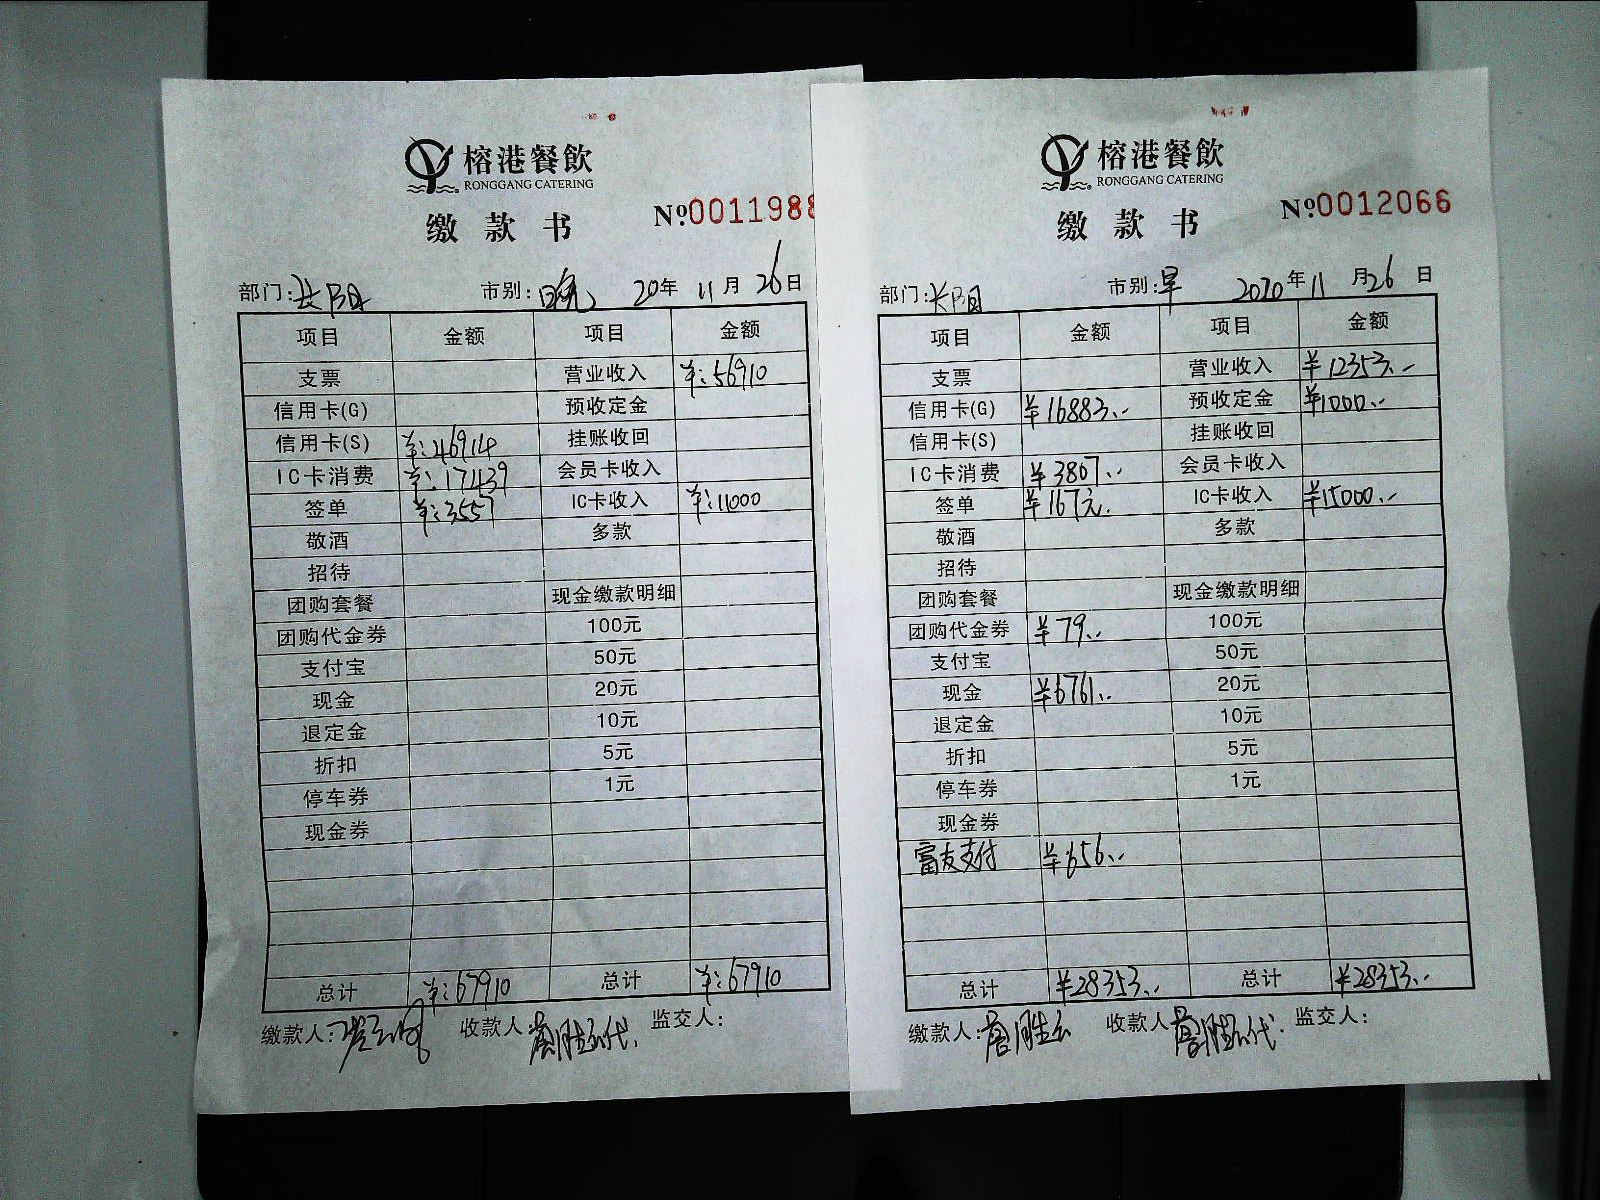 榕港餐飲
RONGGANG CATERING
缴款书
№001198
部门:长阳 市别:晚 20年 11月 26日
项目 金额 项目 金额
支票 营业收入 ¥:56910
信用卡(G) 预收定金
信用卡(S) ¥:46914 挂账收回
IC卡消费 ¥:17439 会员卡收入
签单 ¥:3557 IC卡收入 ¥:11000
敬酒 多款
招待
团购套餐 现金缴款明细
团购代金券 100元
支付宝 50元
现金 20元
退定金 10元
折扣 5元
停车券 1元
现金券
总计 ¥:67910 总计 ¥:67910
缴款人: 收款人 代. 监交人:
榕港餐飲
RONGGANG CATERING
缴款书
№0012066
部门:长阳 市别:早 2020年 11月 26日
项目 金额 项目 金额
支票 营业收入 ¥12353.-
信用卡(G) ¥16883.- 预收定金 ¥1000.-
信用卡(S) 挂账收回
IC卡消费 ¥3807.- 会员卡收入
签单 ¥167元. IC卡收入 ¥15000.-
敬酒 多款
招待
团购套餐 现金缴款明细
团购代金券 ¥79.- 100元
支付宝 50元
现金 ¥6761.- 20元
退定金 10元
折扣 5元
停车券 1元
现金券
富友支付 ¥656.-
总计 ¥28353.- 总计 ¥28353.-
缴款人: 收款人 代. 监交人: